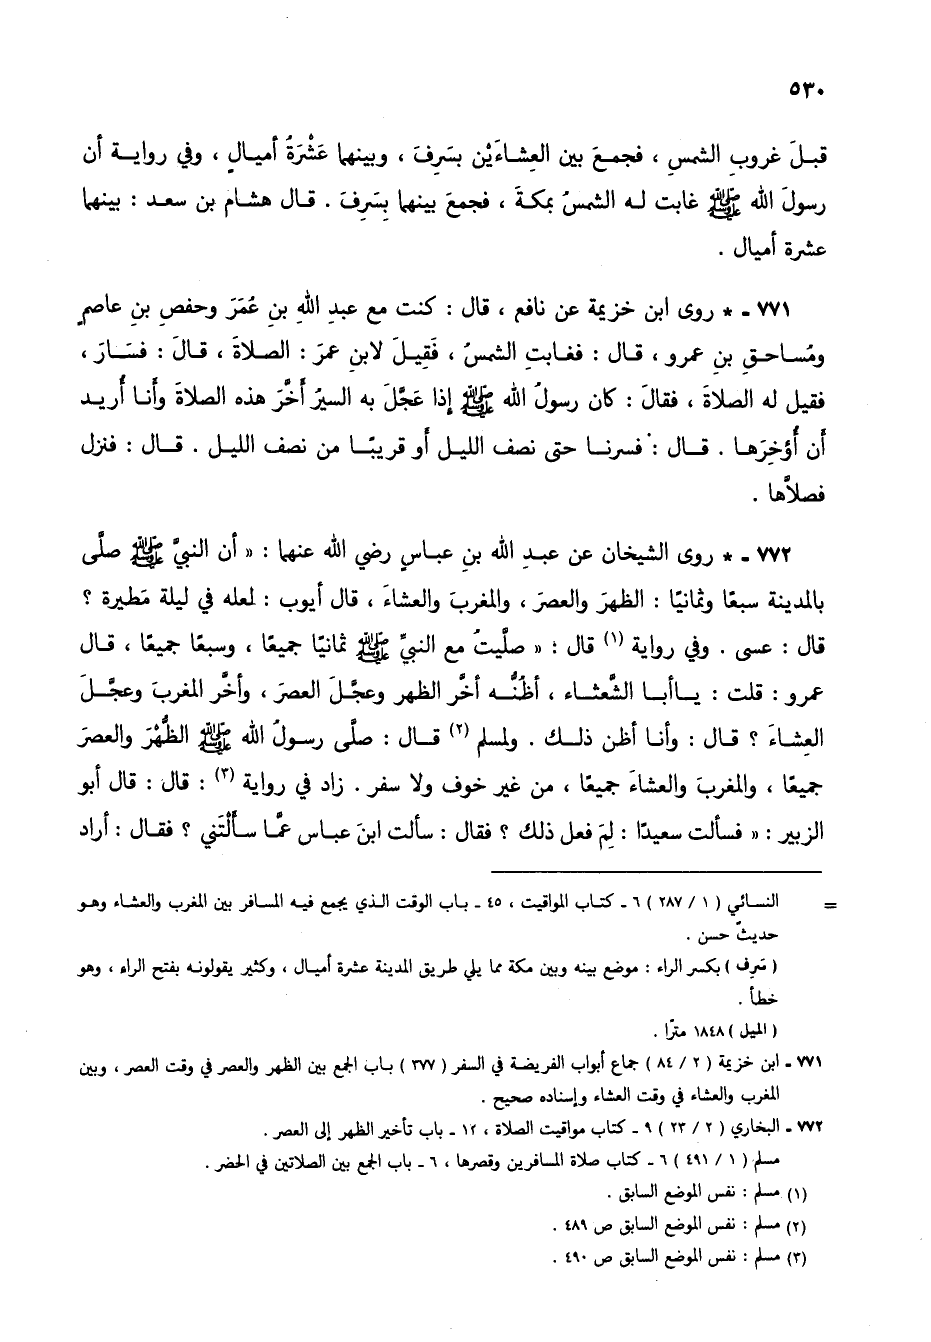 ٥٣٠
قبلَ غروبِ الشمسِ ، فجمعَ بين العِشاءَيْن بسَرِفَ ، وبينهما عَشْرَةُ أميالٍ ، وفي روايـة أن
رسولَ الله ﷺ غابت لـه الشمسُ بمكةَ ، فجمعَ بينهما بسَرِفَ . قـال هشام بن سعد : بينهما
عشرة أميال .
٧٧١ ـ * روى ابن خزيمة عن نافع ، قال : كنت مع عبدِ اللهِ بنِ عُمَرَ وحفصِ بنِ عاصمٍ
ومُساحقِ بنِ عمرو ، قـال : فغـابتِ الشمسُ ، فَقِيـلَ لابنِ عمرَ : الصـلاةَ ، قـالَ : فَسَـارَ ،
فقيل له الصلاةَ ، فقالَ : كان رسولُ الله ﷺ إذا عَجَّلَ به السيرُ أخَّرَ هذه الصلاةَ وأنـا أُريـد
أن أُؤخِرَهـا . قـال : فسرنـا حتى نصف الليـل أو قريبًـا من نصف الليـل . قـال : فنزل
فصلاَّها .
٧٧٢ ـ * روى الشيخان عن عبـدِ الله بنِ عباسٍ رضي الله عنهما : « أن النبيَّ ﷺ صلَّى
بالمدينة سبعًا وثمانيًا : الظهرَ والعصرَ ، والمغربَ والعشاءَ ، قال أيوب : لعله في ليلة مَطيرة ؟
قال : عسى . وفي رواية (١) قال : « صلَّيتُ مع النبيِّ ﷺ ثمانيًا جميعًا ، وسبعًا جميعًا ، قـال
عمرو : قلت : يـاأبـا الشَّعثـاء ، أظُنُّـه أخَّر الظهر وعجَّـلَ العصرَ ، وأخَّر المغربَ وعجَّـلَ
العِشاءَ ؟ قـال : وأنـا أظن ذلـك . ولمسلم (٢) قـال : صلَّى رسـولُ الله ﷺ الظُّهْرَ والعصرَ
جميعًا ، والمغربَ والعشاءَ جميعًا ، من غير خوف ولا سفر . زاد في رواية (٣) : قال : قال أبو
الزبير : « فسألت سعيدًا : لِمَ فعل ذلك ؟ فقال : سألت ابنَ عباس عمَّا سألْتَني ؟ فقـال : أراد
= النسائي ( ١ / ٢٨٧ ) ٦ ـ كتـاب المواقيت ، ٤٥ ـ بـاب الوقت الـذي يجمع فيـه المسـافر بين المغرب والعشـاء وهـو
حديثٌ حسن .
( سَرِف ) بكسر الراء : موضع بينه وبين مكة مما يلي طريق المدينة عشرة أميال ، وكثير يقولونـه بفتح الراء ، وهو
خطأ .
( الميل ) ١٨٤٨ مترًا .
٧٧١ ـ ابن خزيمة ( ٢ / ٨٤ ) جماع أبواب الفريضة في السفر ( ٣٧٧ ) بـاب الجمع بين الظهر والعصر في وقت العصر ، وبين
المغرب والعشاء في وقت العشاء وإسناده صحيح .
٧٧٢ ـ البخاري ( ٢ / ٢٣ ) ٩ ـ كتاب مواقيت الصلاة ، ١٢ ـ باب تأخير الظهر إلى العصر .
مسلم ( ١ / ٤٩١ ) ٦ ـ كتاب صلاة المسافرين وقصرها ، ٦ ـ باب الجمع بين الصلاتين في الحضر .
(١) مسلم : نفس الموضع السابق .
(٢) مسلم : نفس الموضع السابق ص ٤٨٩ .
(٣) مسلم : نفس الموضع السابق ص ٤٩٠ .